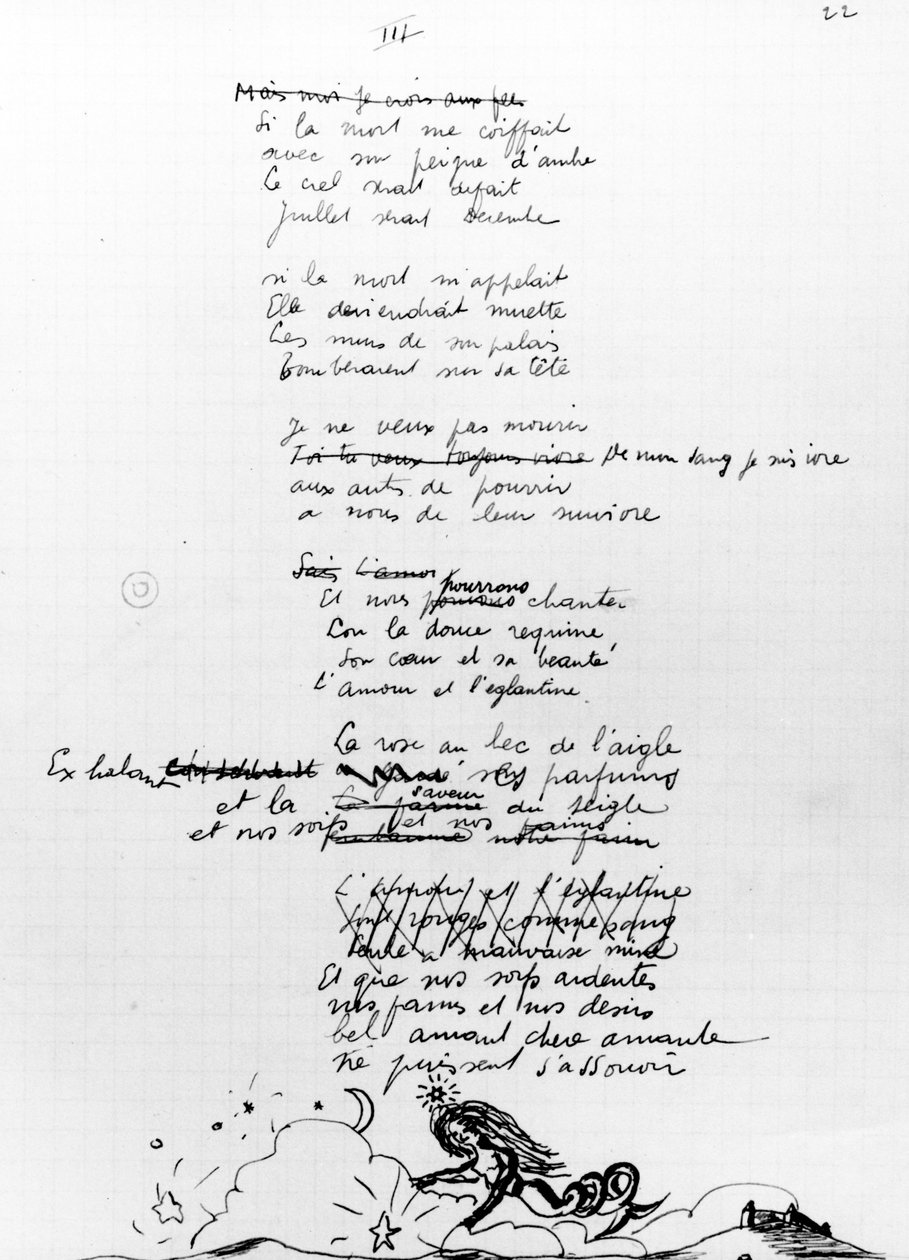 22
III
Mais moi je crois aux fées
Si la mort me coiffait
avec son peigne d'ambre
Le ciel serait défait
Juillet serait Decembre
si la mort m'appelait
Elle deviendrait muette
Les murs de son palais
Tomberaient sur sa tête
Je ne veux pas mourir
Toi tu veux toujours vivre De mon sang je suis ivre
aux autres de pourrir
a nous de leur survivre
Sais L'amour
pourrons
Et nous pouvons chanter
Lou la douce requine
Son cœur et sa beauté
L'amour et l'eglantine
La rose au bec de l'aigle
Exhalant ses parfums
saveur
et la du seigle
et nos soifs et nos faims
embaume notre faim
L'amour et l'églantine
Sont rouges comme sang
Seule a mauvaise mine
Et que nos soifs ardentes
nos faims et nos desirs
bel amant chere amante
Ne puissent s'assouvir